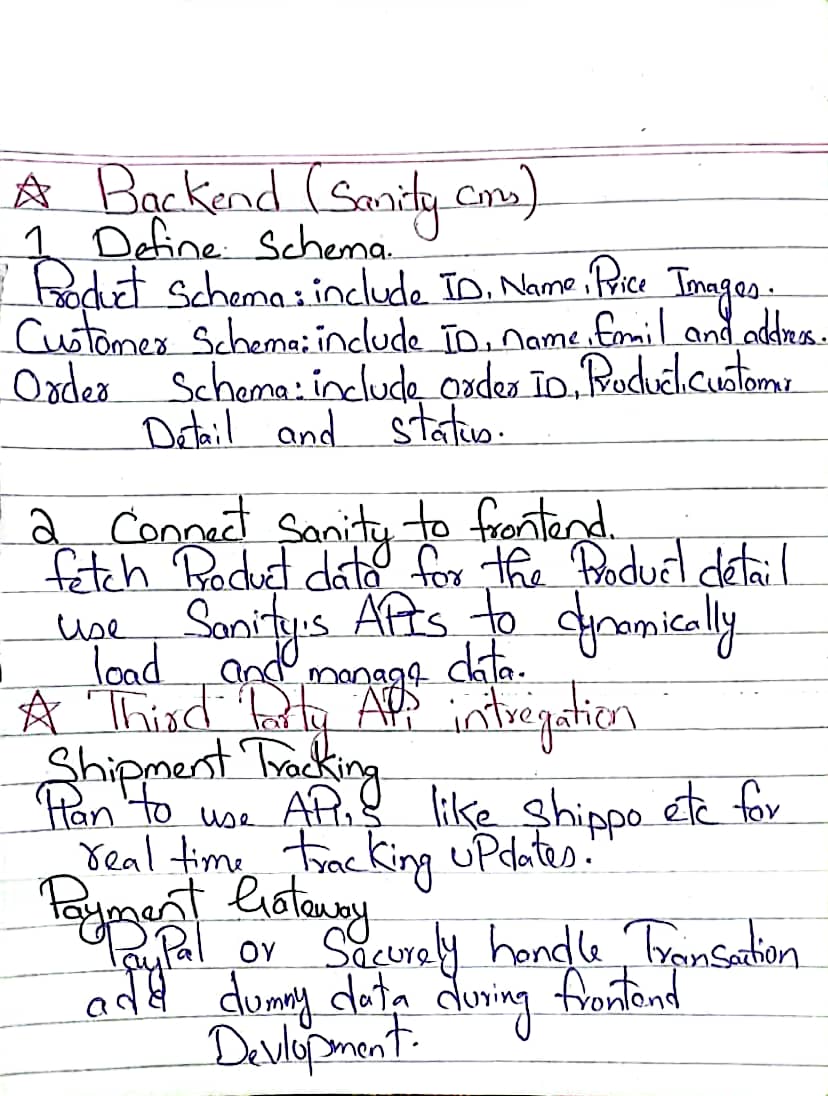 ☆ Backend (Sanity cms)
1 Define Schema.
Product Schema: include ID, Name, Price Images.
Customer Schema: include ID, name, Email and address.
Order Schema: include order ID, Product, customer
Detail and status.
2 Connect Sanity to frontend.
fetch Product data for the Product detail
use Sanity,s APIs to dynamically
load and manage data.
☆ Third Party APi intregation
Shipment Tracking
Plan to use APi,s like Shippo etc for
real time tracking uPdates.
Payment Gateway
PayPal or Securely handle Transaction
add dummy data during frontend
Devlopment.